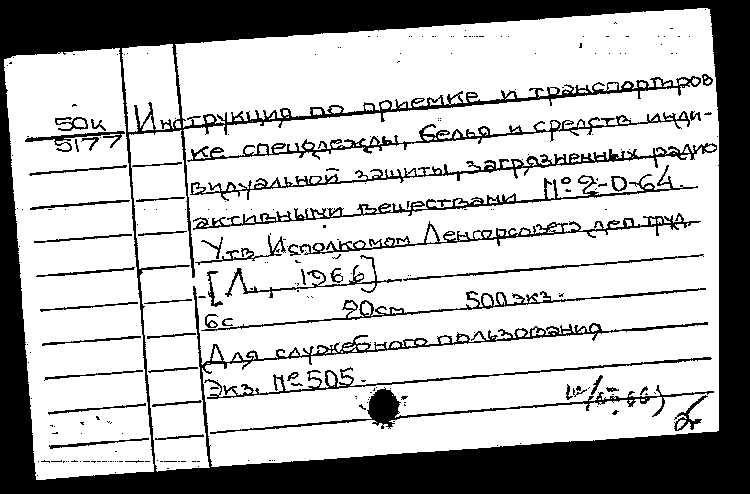 50к
5177
Инструкция по приемке и транспортиров
ке спецодежды, белья и средств инди-
видуальной защиты, загрязненных радио
активными веществами №2-0-64.
Утв Исполкомом Ленгорсовета деп. труд.
[Л., 1966]
6с. 20см 500 экз.
Для служебного пользования
Экз. №505.